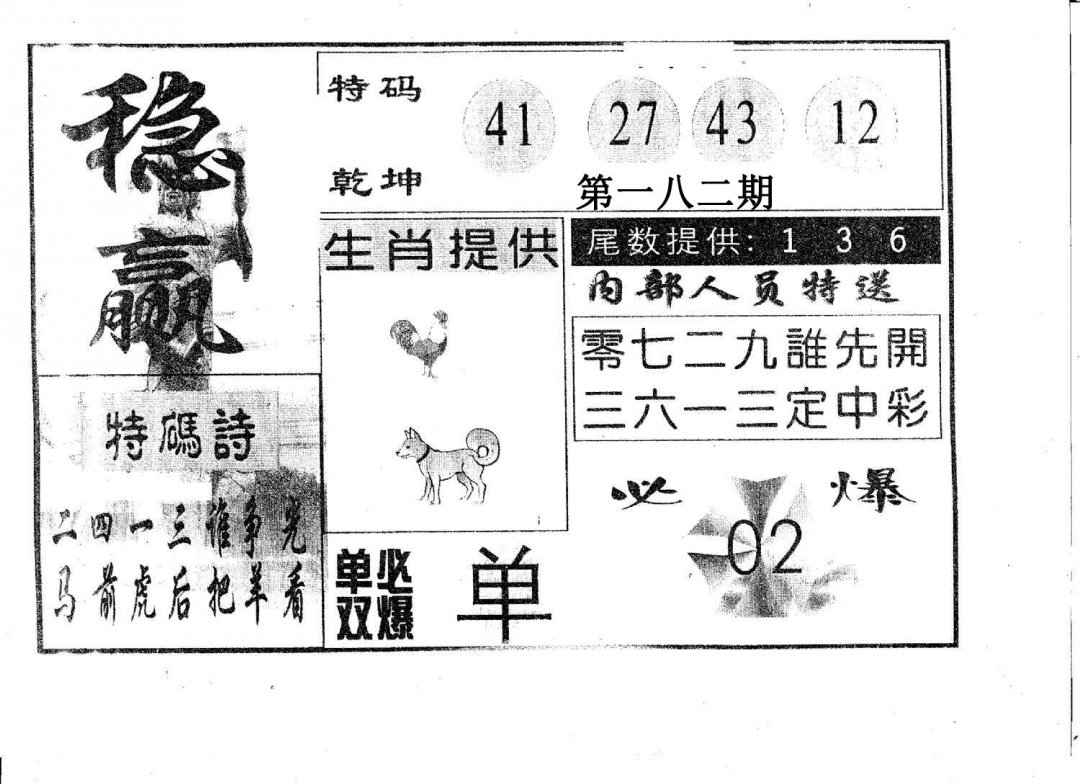 稳赢
特码
41 27 43 12
乾坤
第一八二期
生肖提供
尾数提供: 1 3 6
内部人员特送
零七二九誰先開
三六一三定中彩
特碼詩
二四一三谁争光
马前虎后把羊看
必爆
02
单双必爆
单